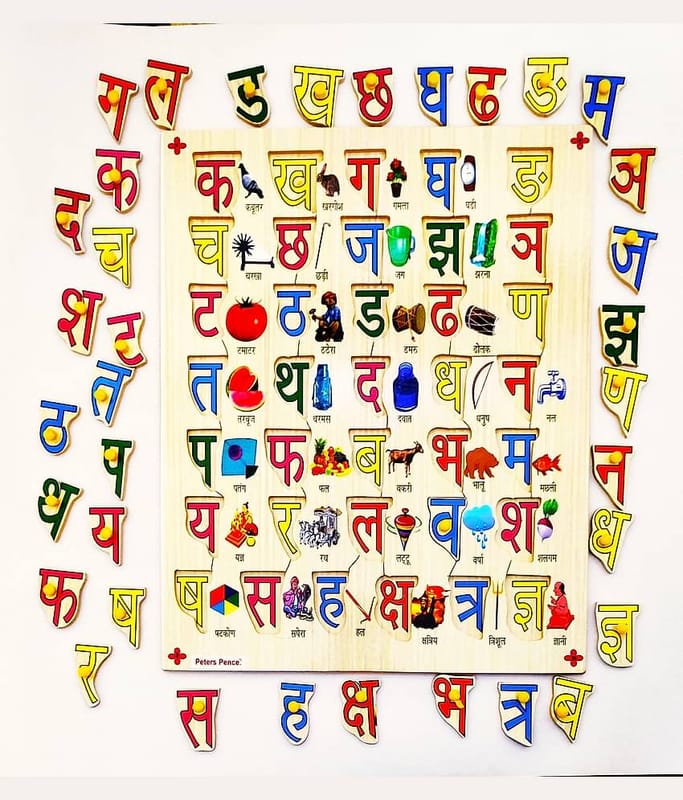 ग ल ड ख छ घ ढ ङ म
क ञ
द च ज
श ट झ
त ण
ठ
प न
थ य ध
फ ष ज्ञ
र
क ख ग घ ङ
कबूतर खरगोश गमला घड़ी
च छ ज झ ञ
चरखा छड़ी जग झरना
ट ठ ड ढ ण
टमाटर ठठेरा डमरू ढोलक
त थ द ध न
तरबूज थरमस दवात धनुष नल
प फ ब भ म
पतंग फल बकरी भालू मछली
य र ल व श
यज्ञ रथ लट्टू वर्षा शलगम
ष स ह क्ष त्र ज्ञ
षटकोण सपेरा हल क्षत्रिय त्रिशूल ज्ञानी
Peters Pence
स ह क्ष भ त्र ब